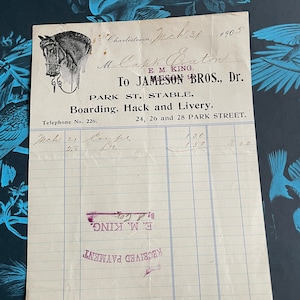 Charlestown, Mch 31 1905
M
E. M. KING.
To JAMESON BROS., Dr.
PARK ST. STABLE,
Boarding, Hack and Livery.
Telephone No. 226. 24, 26 and 28 PARK STREET.
Mch 21 Coupe 1.50
RECEIVED PAYMENT
E. M. KING.